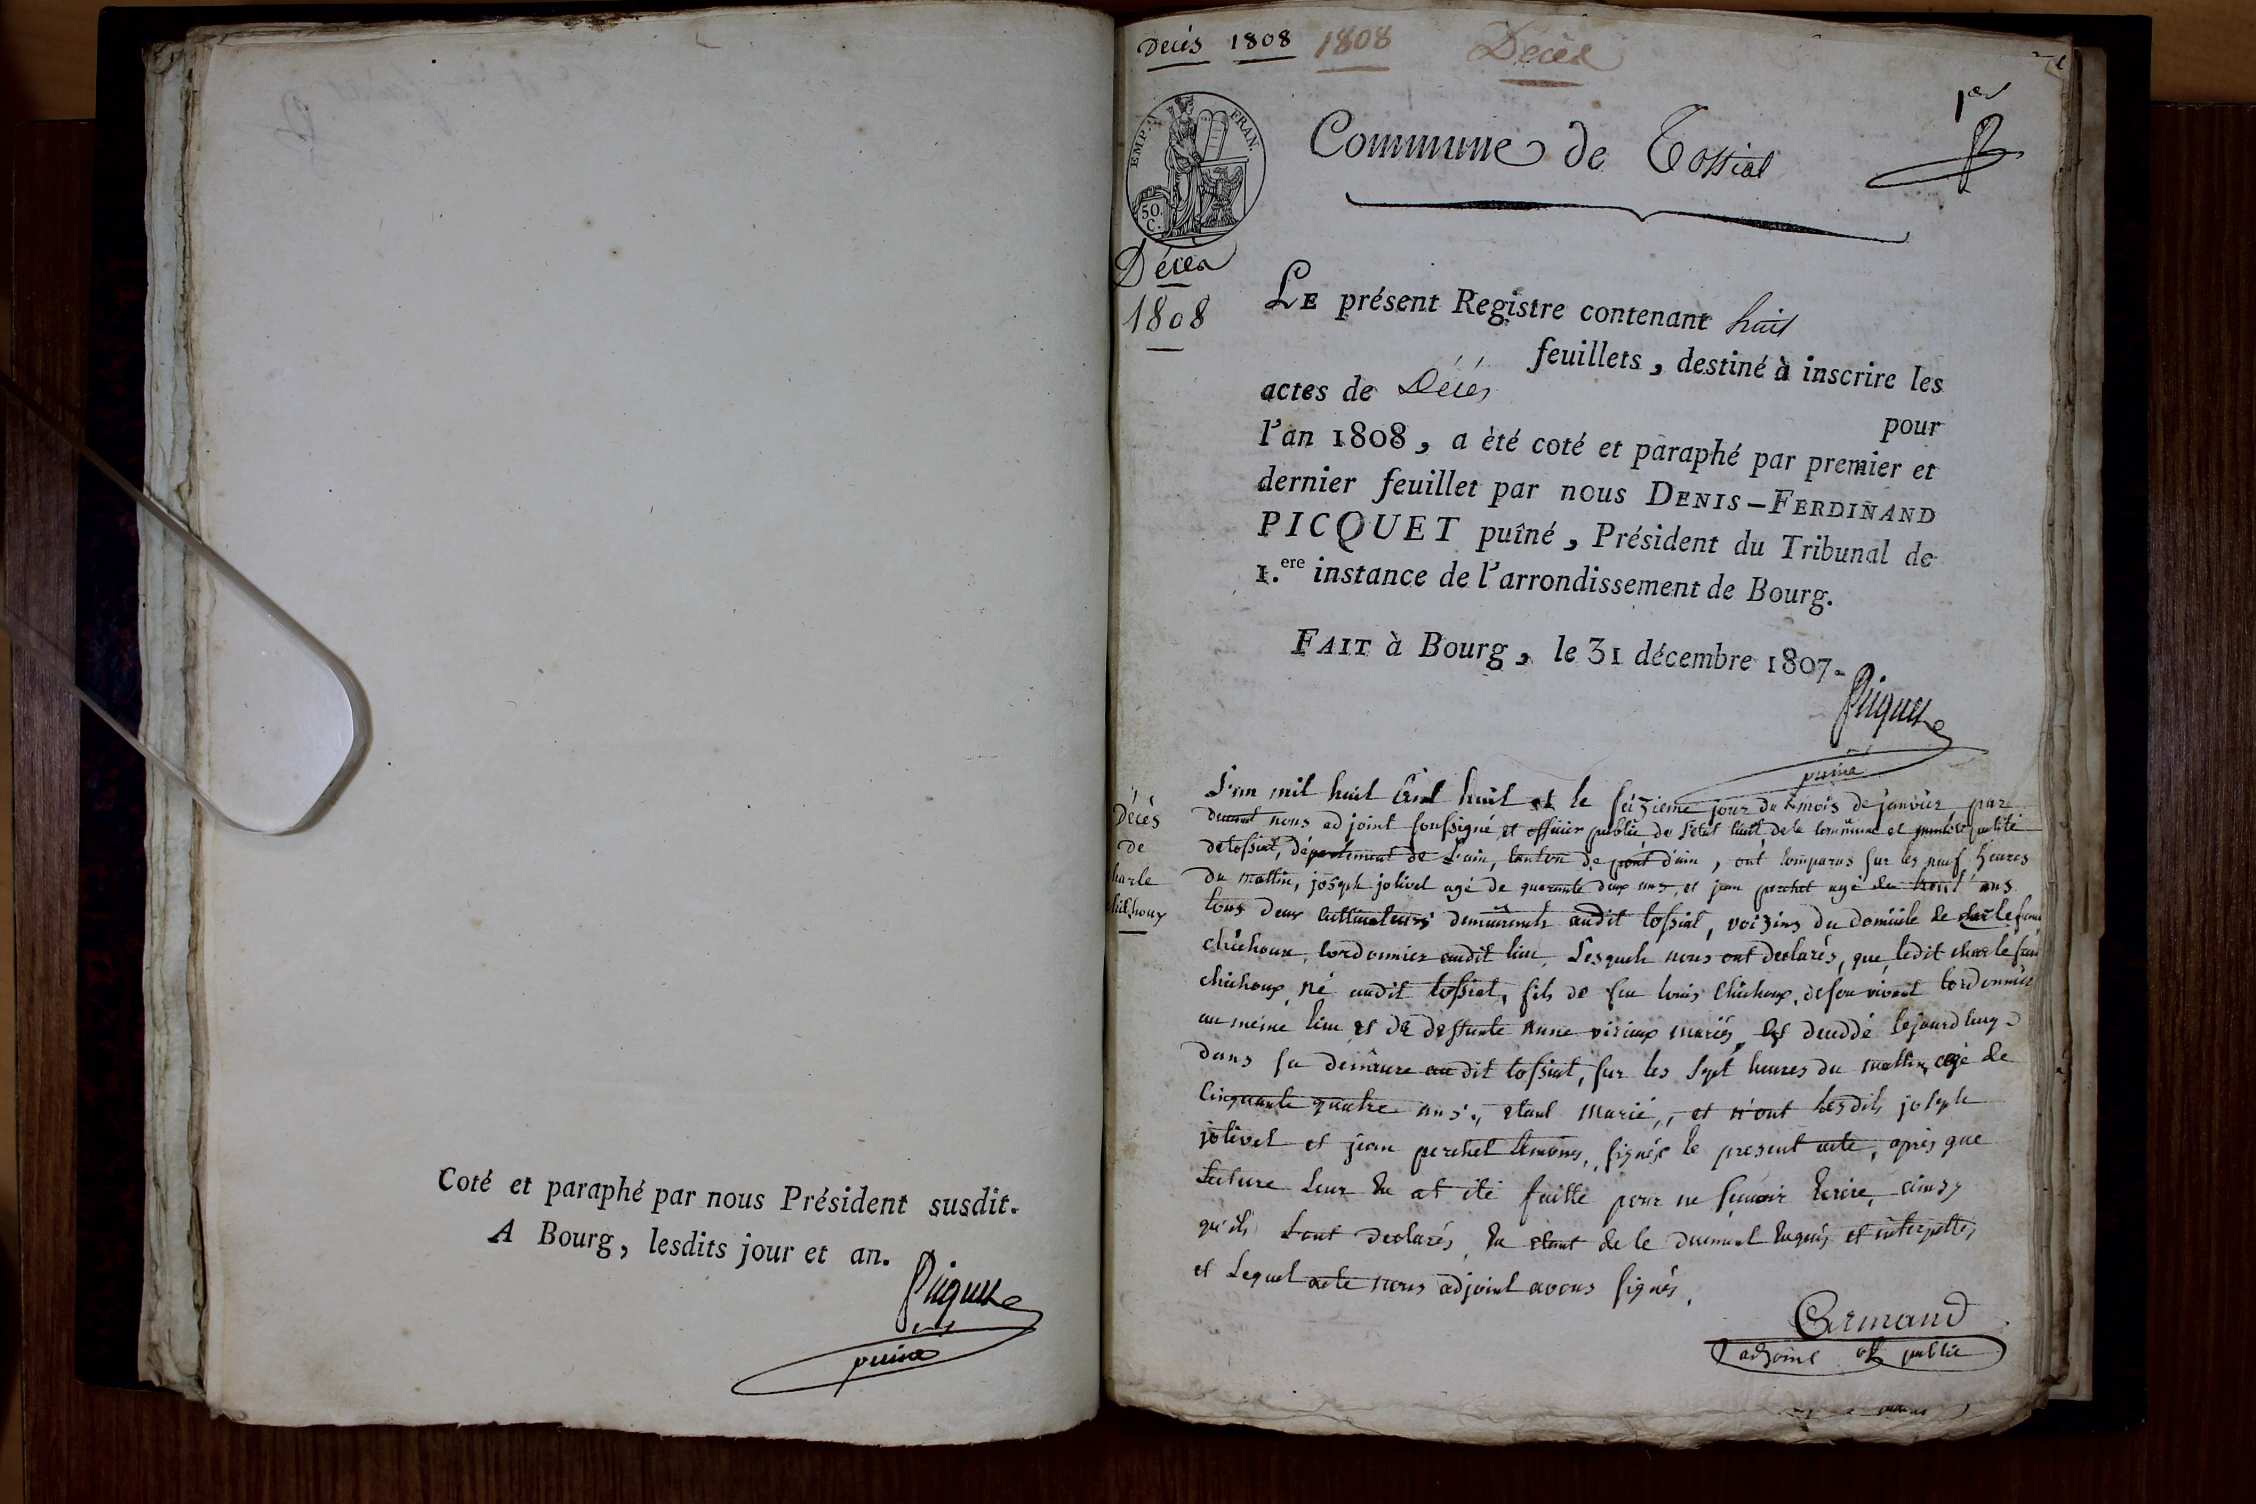 Coté et paraphé par nous Président susdit.
A Bourg, lesdits jour et an.
Picquet
puiné
Decés 1808 1808 Décès
1er
Commune de Tossiat
EMP. FRAN.
50. C.
Décès
1808
LE présent Registre contenant huit
feuillets, destiné à inscrire les
actes de Décés
pour
l'an 1808, a èté coté et paraphé par premier et
dernier feuillet par nous DENIS-FERDINAND
PICQUET puîné, Président du Tribunal de
1.ere instance de l'arrondissement de Bourg.
FAIT à Bourg, le 31 décembre 1807.
Picquet
puiné
Décès
de
harle
chichoux
L'an mil huit Cent huit et le seizieme jour du mois de janvier par
devant nous adjoint soussigné et officier public de l'état Civil de la Commune et
detossiat, département de L'ain, Canton de pont d'ain, ont Comparus sur les neuf heures
du mattin, joseph jolivet agé de quarante deux ans, et jean perchet agé de trent ans
tous deux Cultivateurs demeurants audit tossiat, voizins du domicile de charle
chichoux, Cordonnier audit lieu, Lesquels nous ont declarés, que ledit charle
chichoux, né audit tossiat, fils de feu louis Chichoux, deson vivant Cordonnier
au même lieu et de deffunte Anne viriaux mariés, est decedé Cejourdhuy
dans sa demeure audit tossiat, sur les sept heures du mattin, agé de
Cinquante quatre ans, etant Marié,, et n'ont Lesdits joseph
jolivet et jean perchet temoins, signés le present acte, après que
Lecture Leur En at été faitte pour ne sçavoir Ecrire, ainsy
qu'ils L'ont declarés, En etant de le duement Enquis et interpellés
et Lequel acte nous adjoint avons signés.
Armand
adjoint of. public